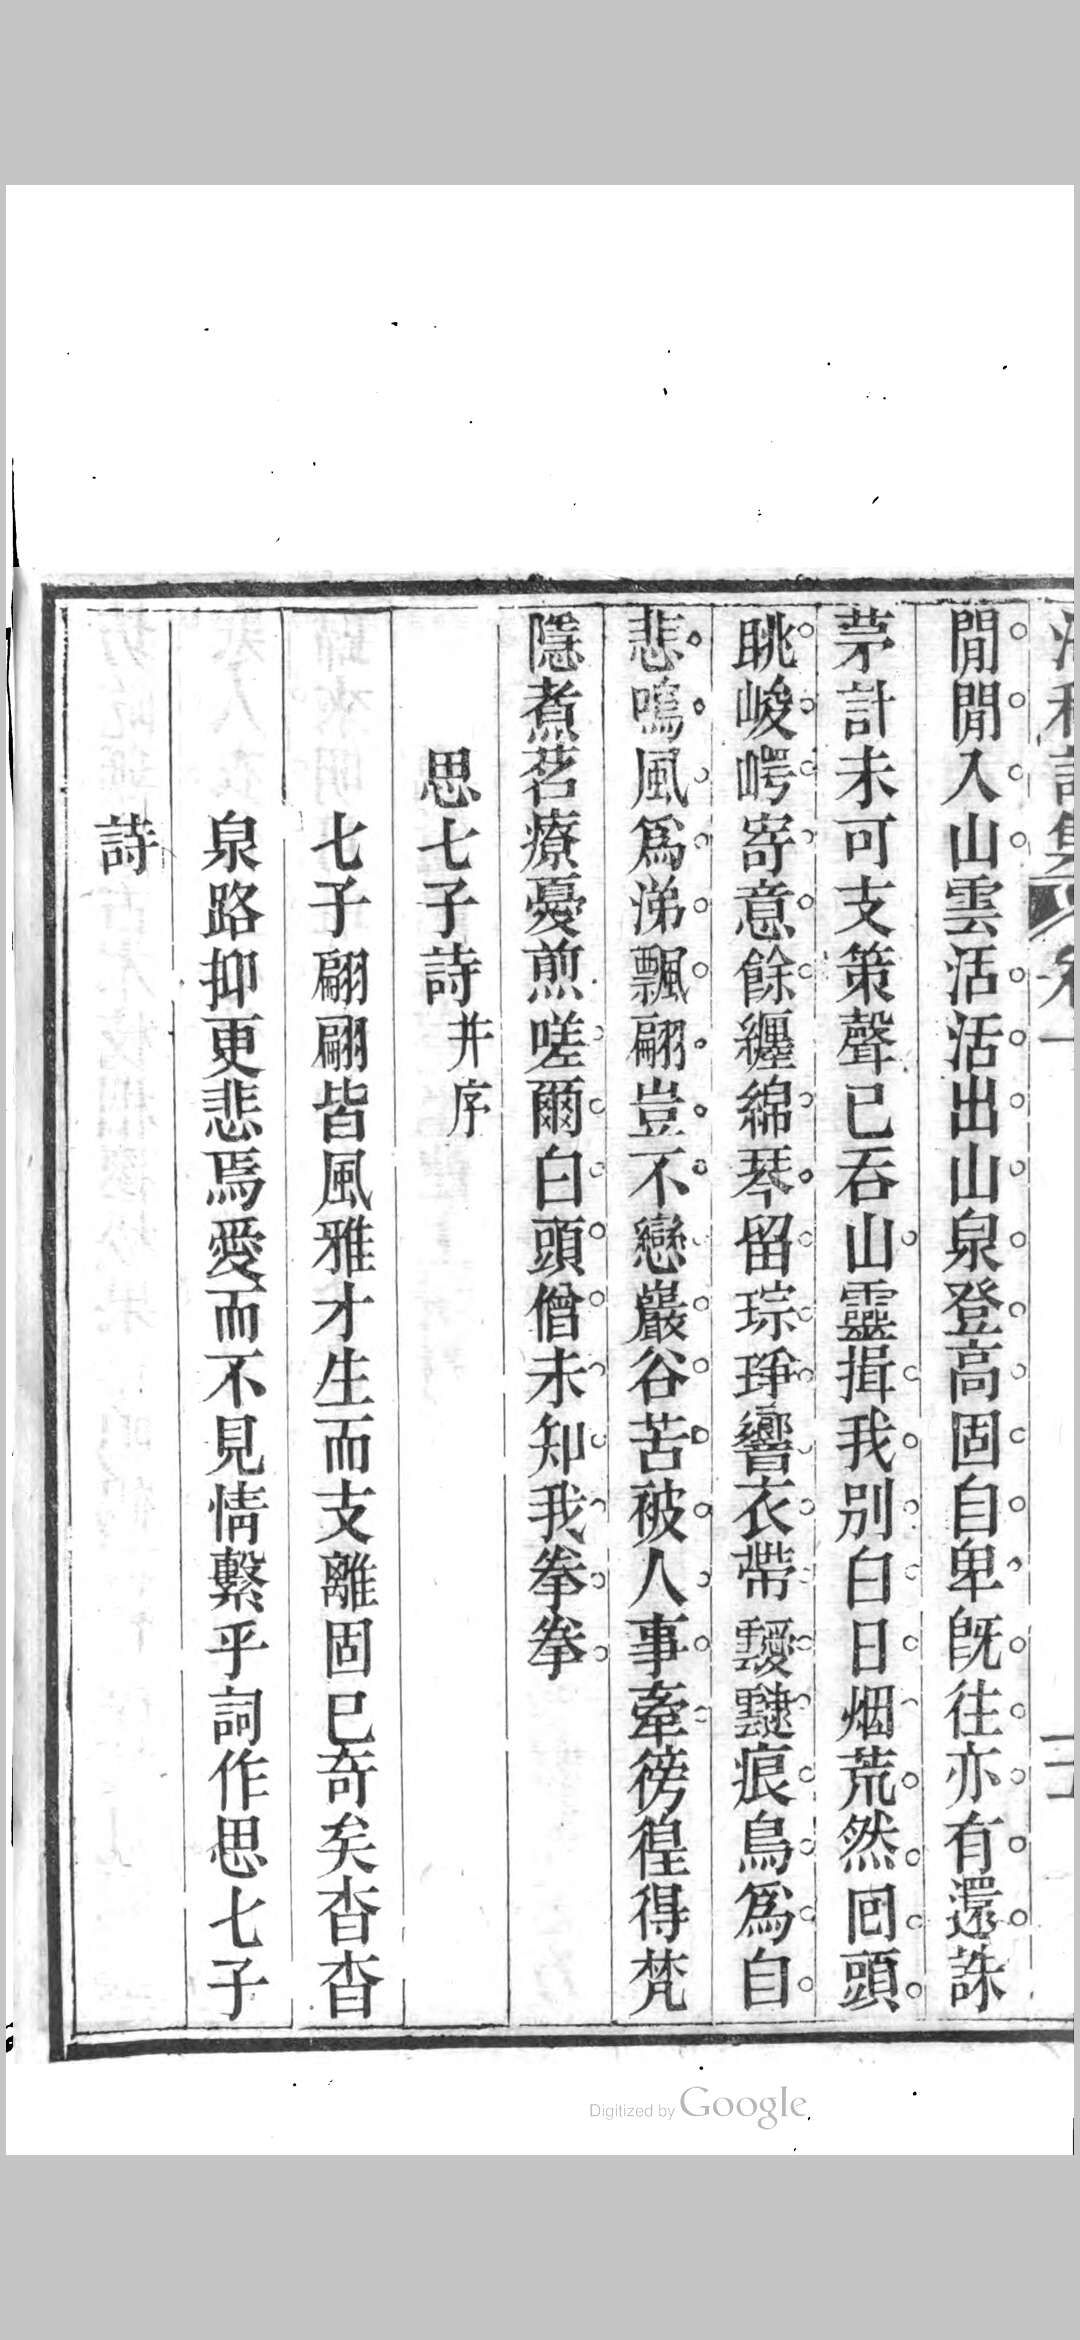 詩集 卷一
閒閒入山雲活活出山泉登高固自卑既往亦有還誅
茅計未可支策聲已吞山靈揖我別白日烟荒然囘頭
眺峻崿寄意餘纏綿琴留琮琤響衣帶靉靆痕鳥為自
悲鳴風為涕飄翩豈不戀巖谷苦被人事牽徬徨得梵
隱煮茗療憂煎嗟爾白頭僧未知我拳拳
思七子詩 并序
七子翩翩皆風雅才生而支離固已奇矣杳杳
泉路抑更悲焉愛而不見情繫乎詞作思七子
詩
Digitized by Google